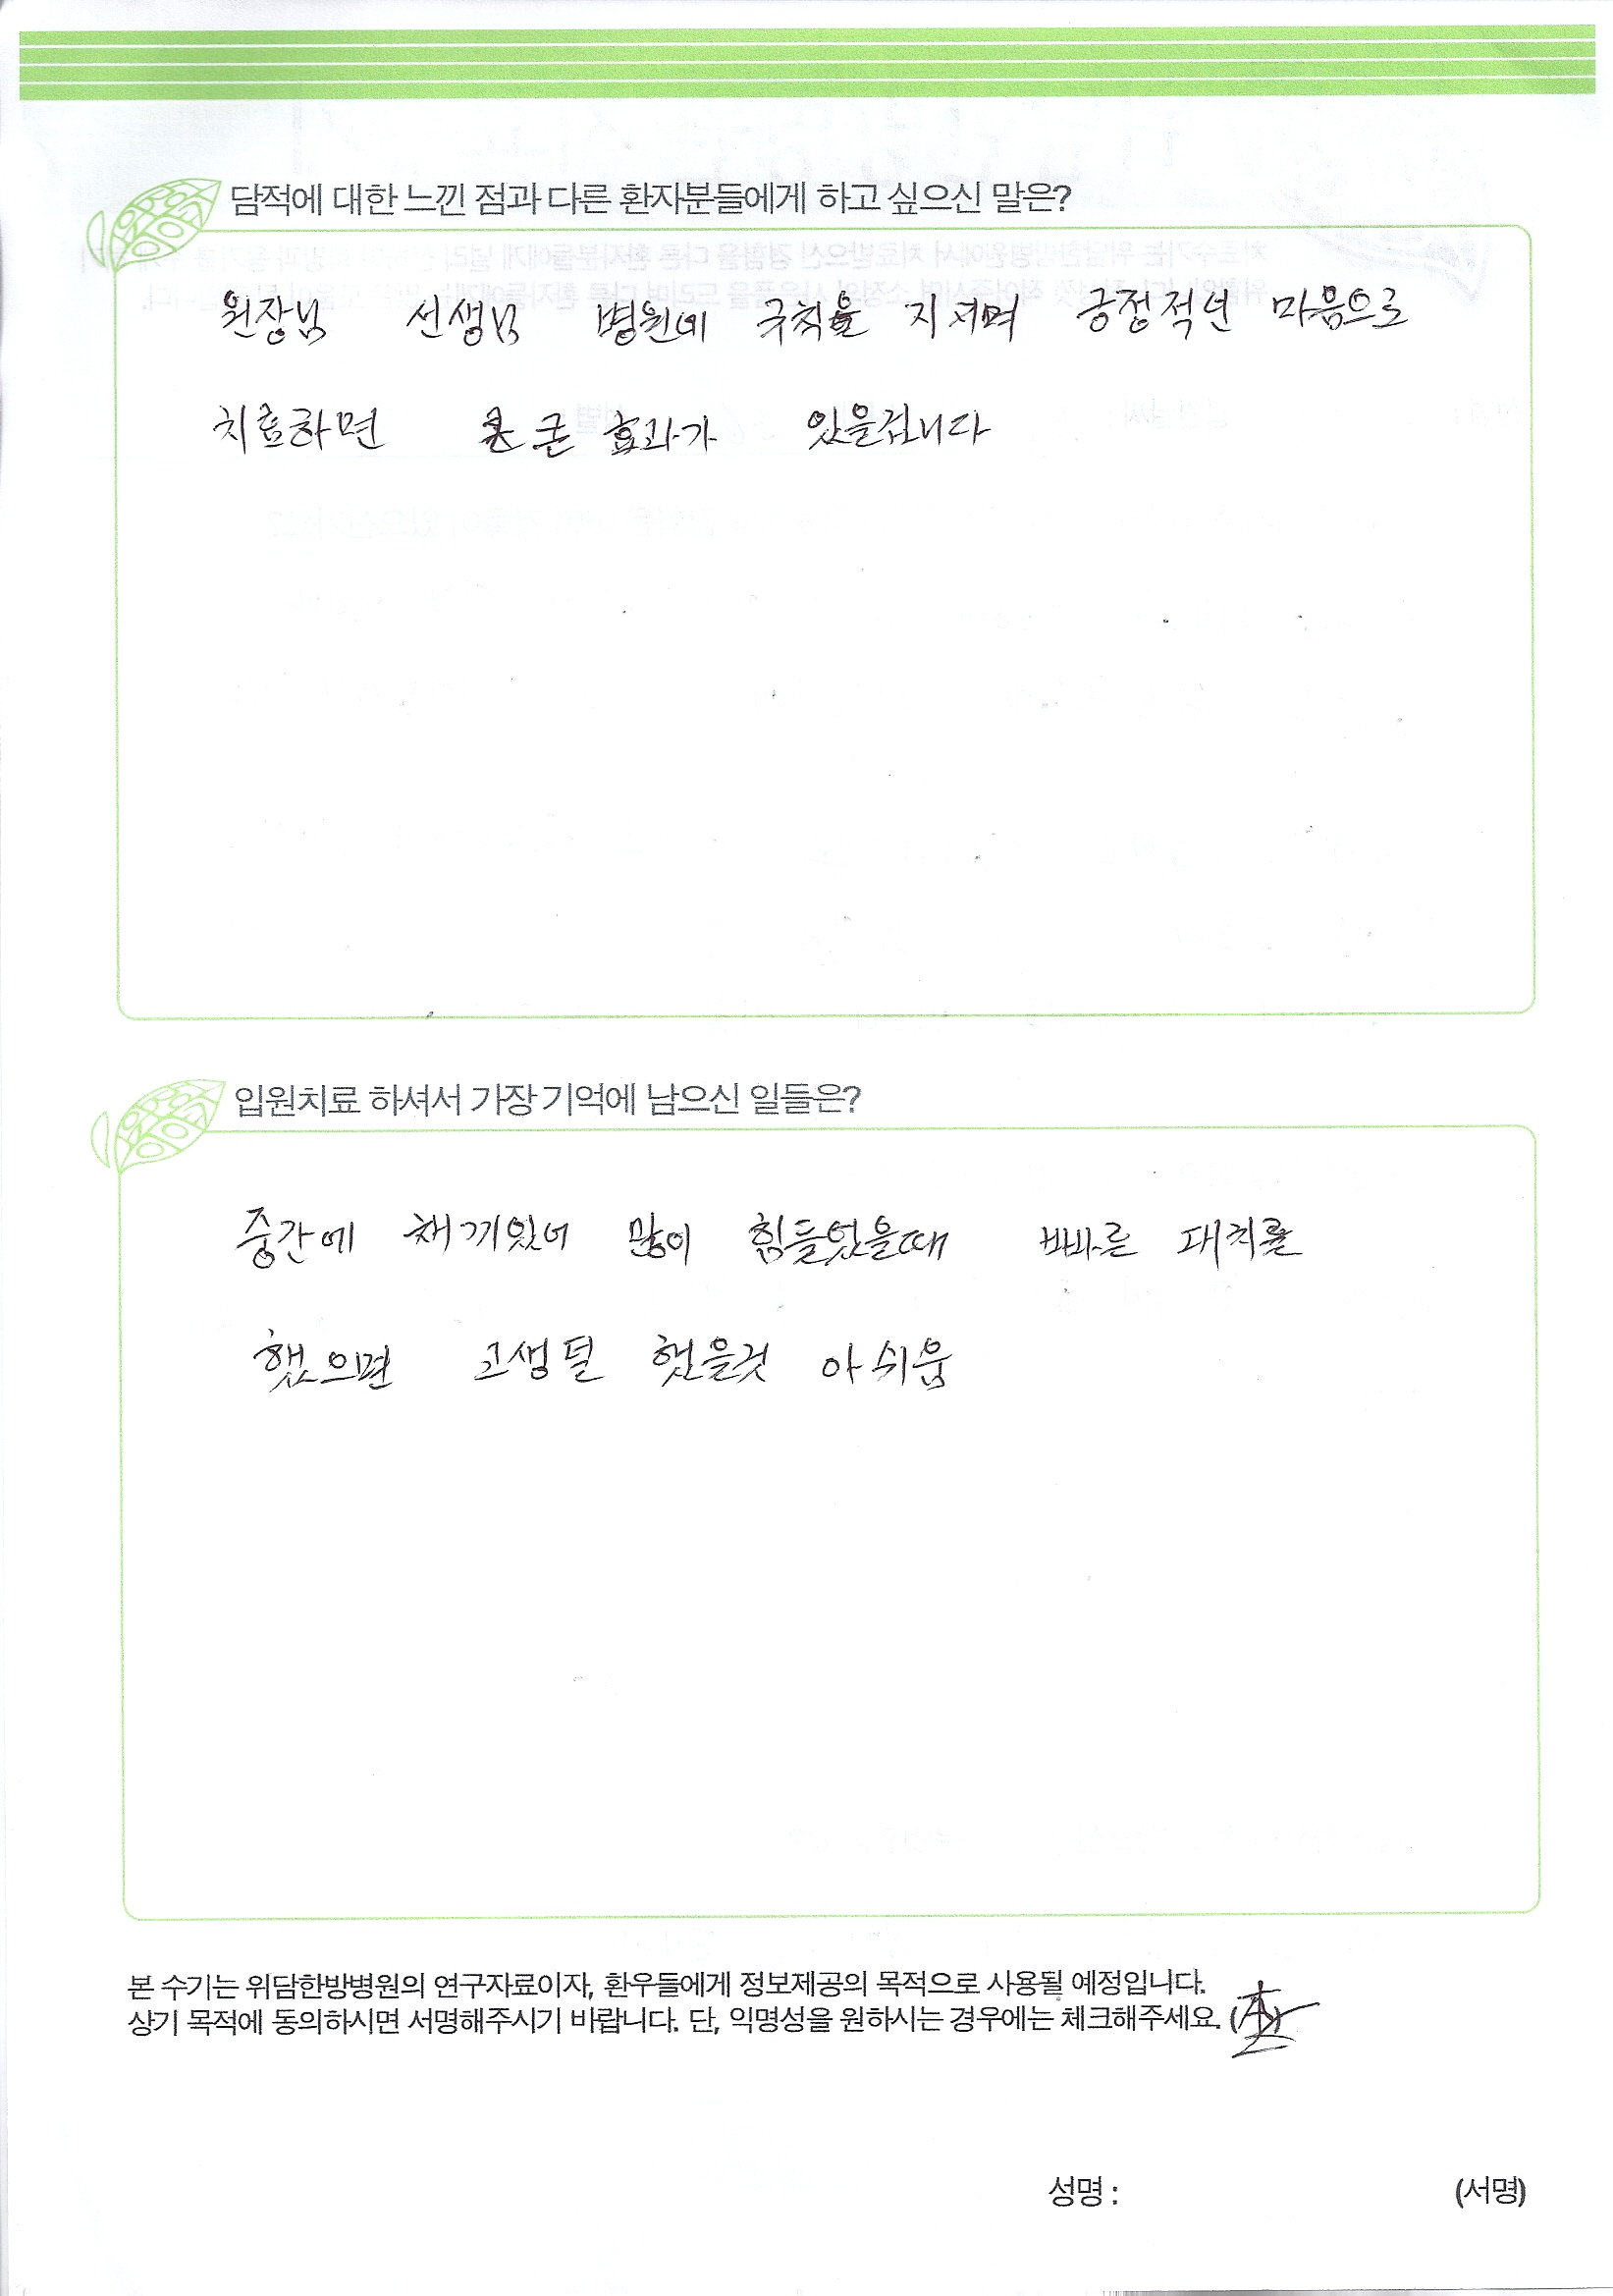 담적에 대한 느낀 점과 다른 환자분들에게 하고 싶으신 말은?
원장님 선생님 병원에 규칙을 지켜며 긍정적인 마음으로
치료하면 큰 효과가 있을겁니다
입원치료 하셔서 가장 기억에 남으신 일들은?
중간에 채끼있어 많이 힘들었을때 빠른 대처를
했으면 고생덜 했을것 아쉬움
본 수기는 위담한방병원의 연구자료이자, 환우들에게 정보제공의 목적으로 사용될 예정입니다.
상기 목적에 동의하시면 서명해주시기 바랍니다. 단, 익명성을 원하시는 경우에는 체크해주세요. ( )
성명 : (서명)